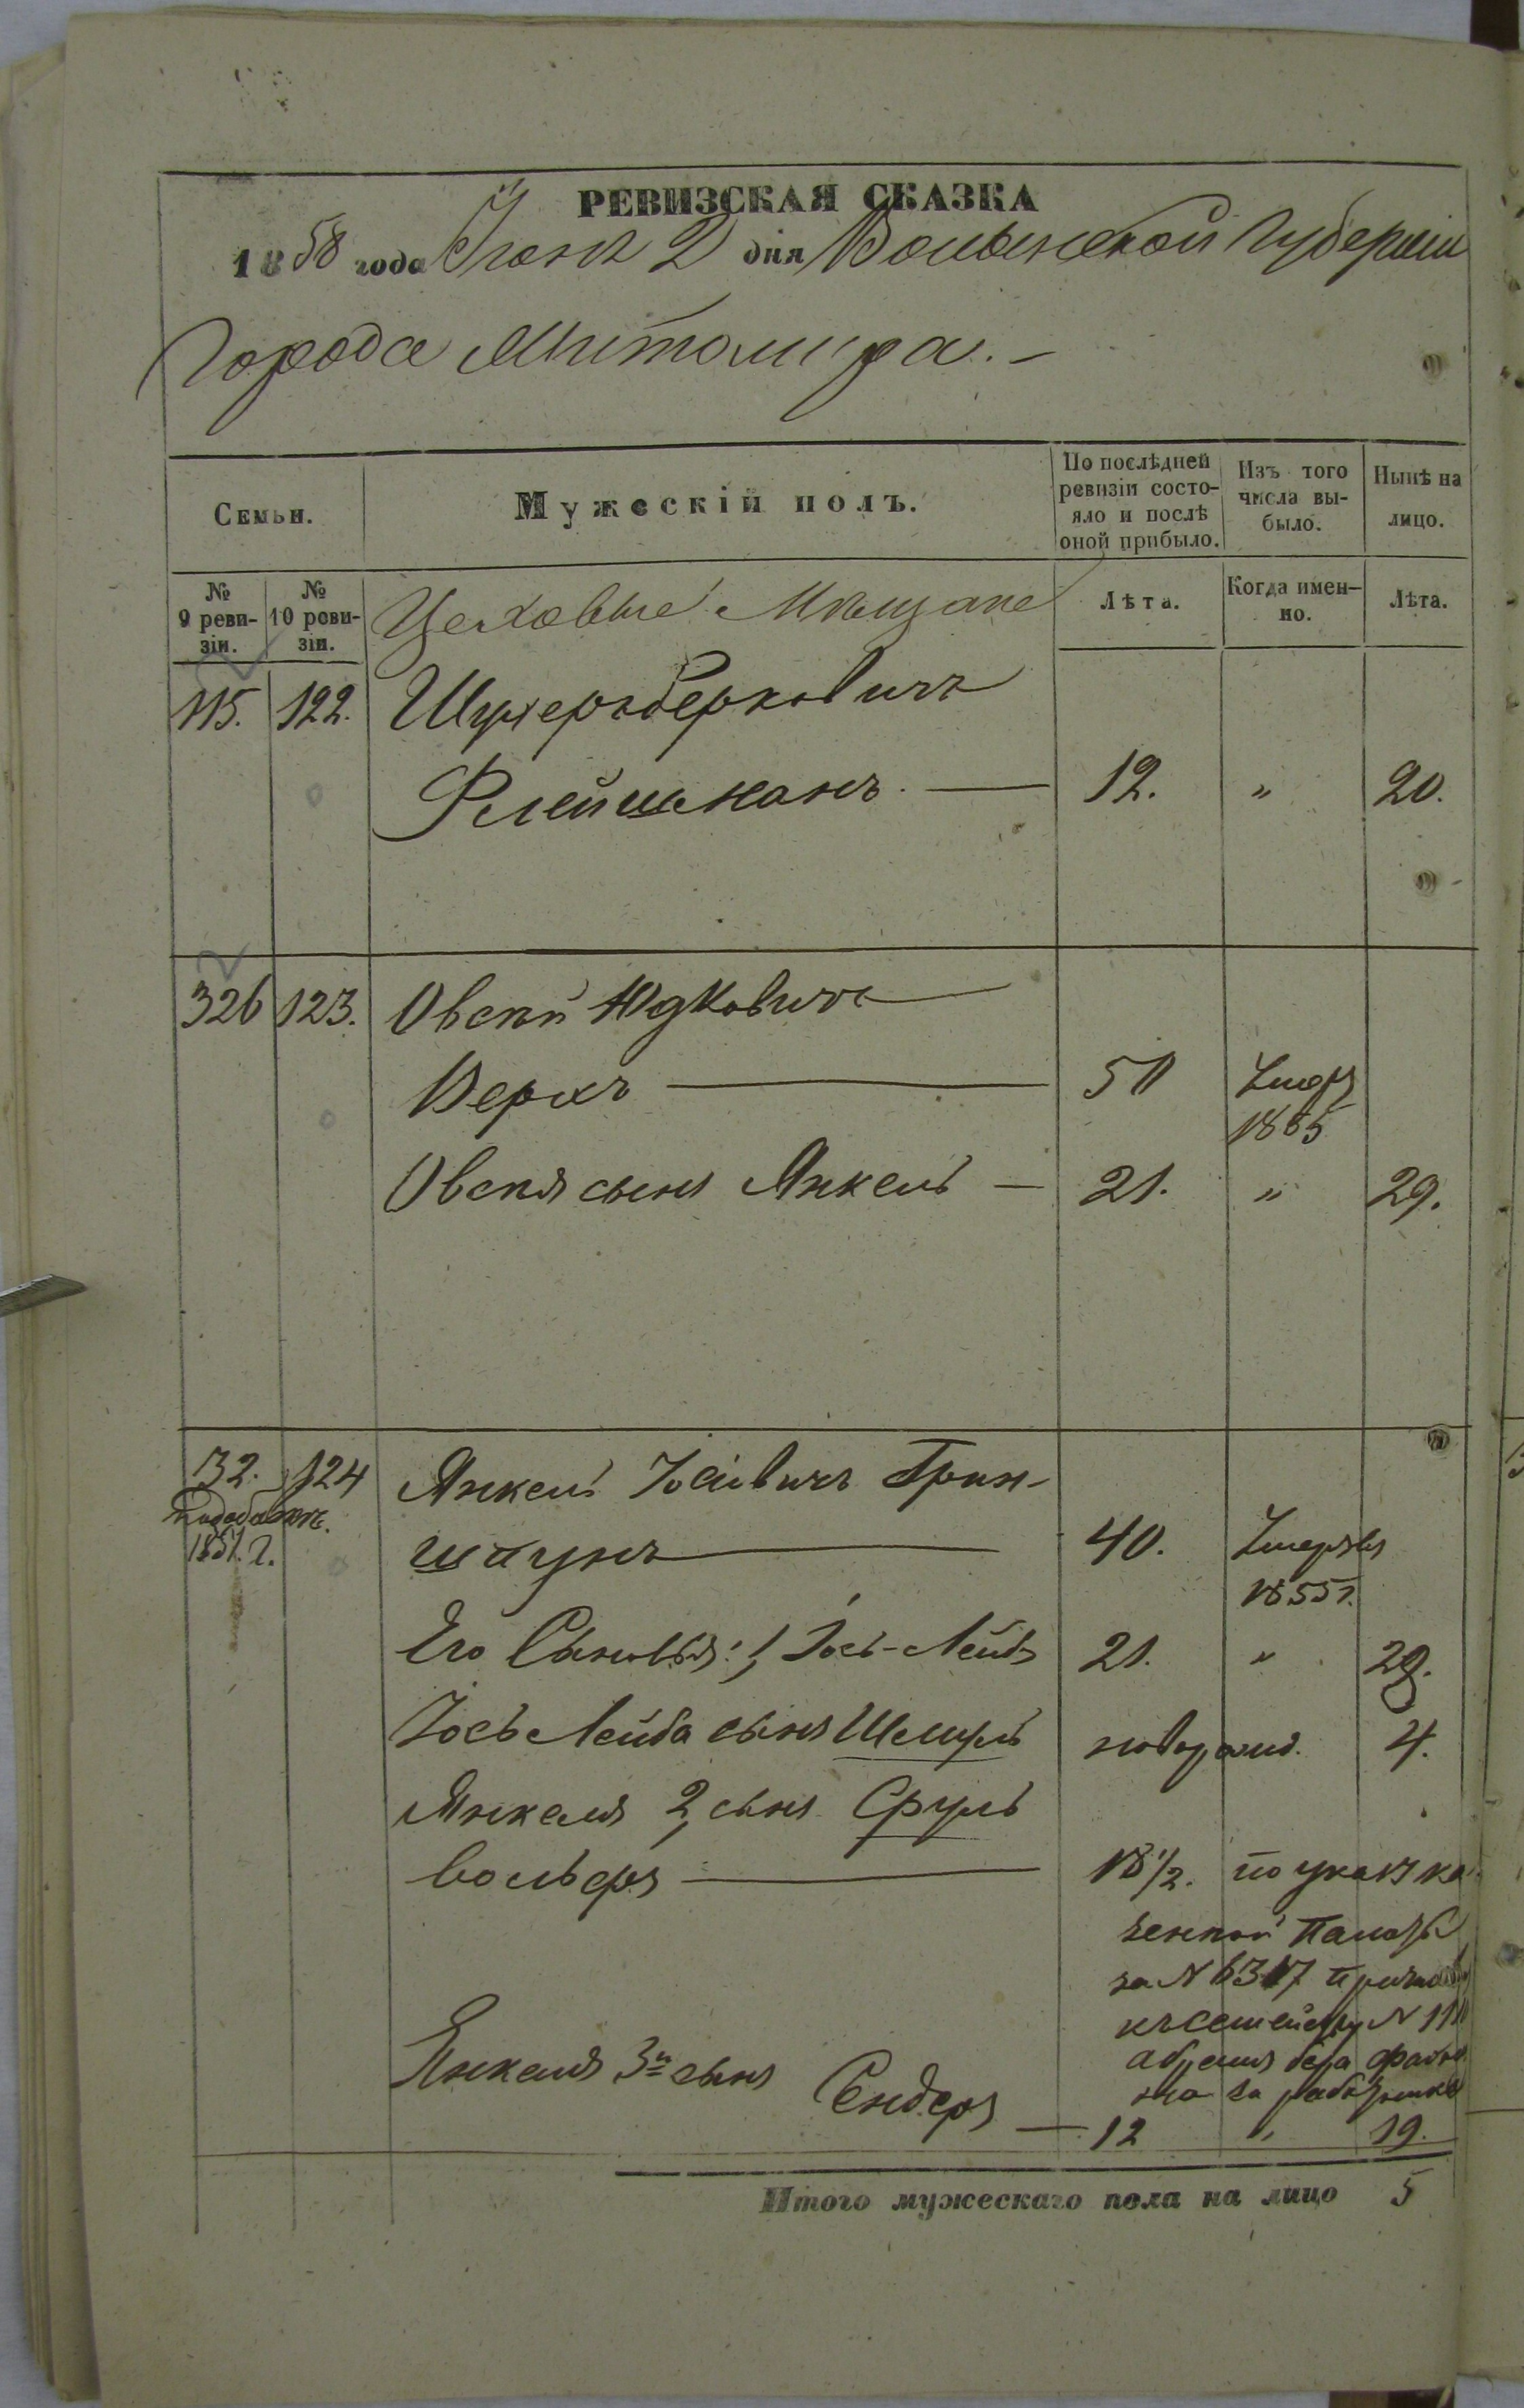 РЕВИЗСКАЯ СКАЗКА
1858 года Іюня 2 дня Волынской Губерніи
Города Житомира. –
Семьи.
Мужескій полъ.
По послѣдней ревизіи состояло и послѣ оной прибыло.
Изъ того числа выбыло.
Нынѣ на лицо.
№ 9 ревизіи.
№ 10 ревизіи.
Цеховые Мѣщане
Лѣта.
Когда именно.
Лѣта.
115. 122. Шухеръ Берковичъ
Флейшманъ. — 12. " 20.
326 123. Овсѣй Юдковичъ
Верхъ — 50 Умеръ
1855
Овсѣя сынъ Янкель — 21. " 29.
32. 124 Янкель Іосіовичъ Грин-
по добавоч.
1851. г.
шпунъ — 40. Умеръ въ
1855 г.
Его Сыновья: 1, Іось-Лейба 21. " 29.
Іось Лейба сынъ Шмуль новорожд. 4.
Янкеля 2, сынъ Сруль
Вольфъ — 18 1/2. по указу ка-
зенной Палаты
за N 6317
къ семейству N
Янкеля 3й сынъ
Сендеръ — 12 " 19.
Итого мужескаго пола на лицо 5